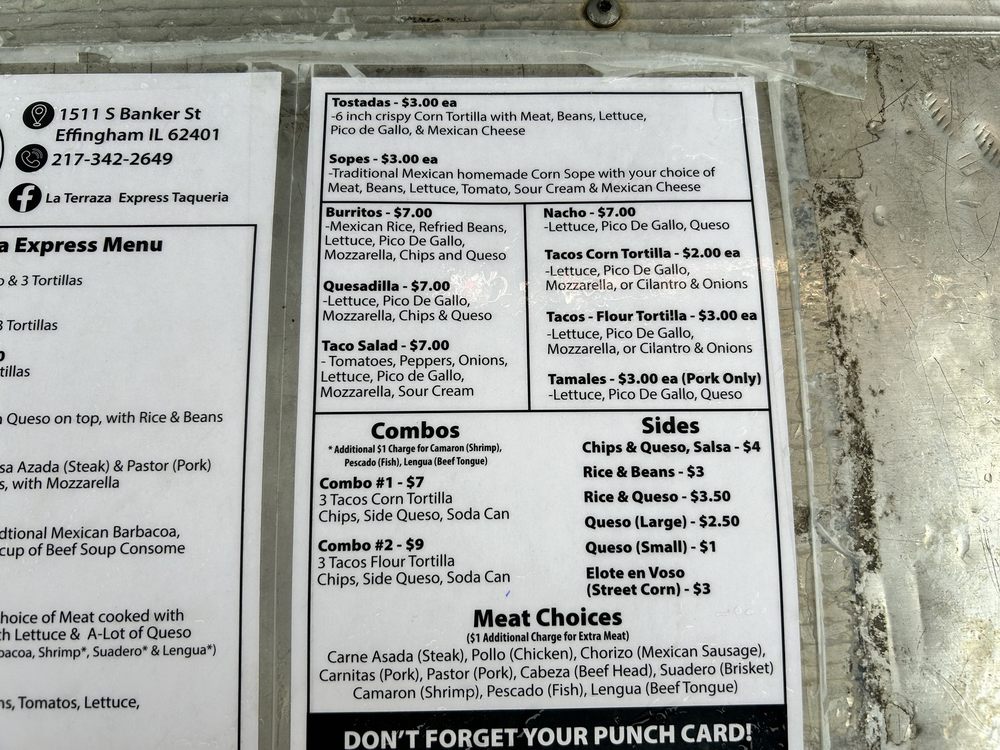 1511 S Banker St
Effingham IL 62401
217-342-2649
La Terraza Express Taqueria
Express Menu
& 3 Tortillas
3 Tortillas
Queso on top, with Rice & Beans
Azada (Steak) & Pastor (Pork)
with Mozzarella
Mexican Barbacoa,
cup of Beef Soup Consome
of Meat cooked with
Lettuce & A-Lot of Queso
Shrimp*, Suadero* & Lengua*)
Tomatos, Lettuce,
Tostadas - $3.00 ea
-6 inch crispy Corn Tortilla with Meat, Beans, Lettuce,
Pico de Gallo, & Mexican Cheese
Sopes - $3.00 ea
-Traditional Mexican homemade Corn Sope with your choice of
Meat, Beans, Lettuce, Tomato, Sour Cream & Mexican Cheese
Burritos - $7.00
-Mexican Rice, Refried Beans,
Lettuce, Pico De Gallo,
Mozzarella, Chips and Queso
Quesadilla - $7.00
-Lettuce, Pico De Gallo,
Mozzarella, Chips & Queso
Taco Salad - $7.00
- Tomatoes, Peppers, Onions,
Lettuce, Pico de Gallo,
Mozzarella, Sour Cream
Nacho - $7.00
-Lettuce, Pico De Gallo, Queso
Tacos Corn Tortilla - $2.00 ea
-Lettuce, Pico De Gallo,
Mozzarella, or Cilantro & Onions
Tacos - Flour Tortilla - $3.00 ea
-Lettuce, Pico De Gallo,
Mozzarella, or Cilantro & Onions
Tamales - $3.00 ea (Pork Only)
-Lettuce, Pico De Gallo, Queso
Combos
* Additional $1 Charge for Camaron (Shrimp),
Pescado (Fish), Lengua (Beef Tongue)
Combo #1 - $7
3 Tacos Corn Tortilla
Chips, Side Queso, Soda Can
Combo #2 - $9
3 Tacos Flour Tortilla
Chips, Side Queso, Soda Can
Sides
Chips & Queso, Salsa - $4
Rice & Beans - $3
Rice & Queso - $3.50
Queso (Large) - $2.50
Queso (Small) - $1
Elote en Voso
(Street Corn) - $3
Meat Choices
($1 Additional Charge for Extra Meat)
Carne Asada (Steak), Pollo (Chicken), Chorizo (Mexican Sausage),
Carnitas (Pork), Pastor (Pork), Cabeza (Beef Head), Suadero (Brisket)
Camaron (Shrimp), Pescado (Fish), Lengua (Beef Tongue)
DON'T FORGET YOUR PUNCH CARD!